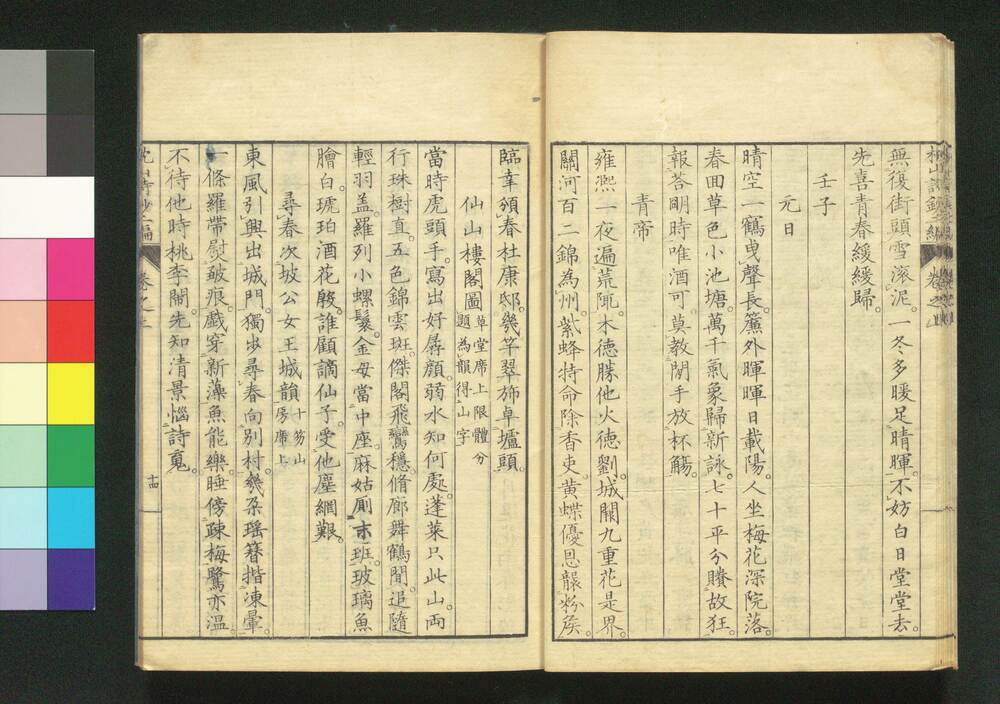 無復街頭雪滾泥一冬多暖足晴暉不妨白日堂堂去
先喜青春緩緩歸
壬子
元日
晴空一鶴曳聲長簾外暉暉日載陽人坐梅花深院落
春回草色小池塘萬千氣象歸新詠七十平分賸故狂
報荅明時唯酒可莫教閒手放杯觴
青帝
雍熙一夜遍荒陬木德勝他火德劉城闕九重花是界
關河百二錦為州紫蜂特命除香吏黃蝶優恩龔粉矦
臨幸頒春杜康邸幾竿翠斾卓壚頭
仙山樓閣圖
草堂席上限體分
題為韻得山字
當時虎頭手寫出好孱顏弱水知何處蓬萊只此山兩
行珠樹直五色錦雲斑傑閣飛鸞穩脩廊舞鶴閒追隨
輕羽蓋羅列小螺鬟金母當中座麻姑厠末班玻璃魚
膾白琥珀酒花殷誰顧謫仙子受他塵網艱
尋春次坡公女王城韻
十笏山
房席上
東風引興出城門獨步尋春向別村幾朶瑤簪揩凍暈
一條羅帶熨皴痕戲穿新藻魚能樂睡傍疎梅鷺亦溫
不待他時桃李閙先知清景惱詩䰟
十四